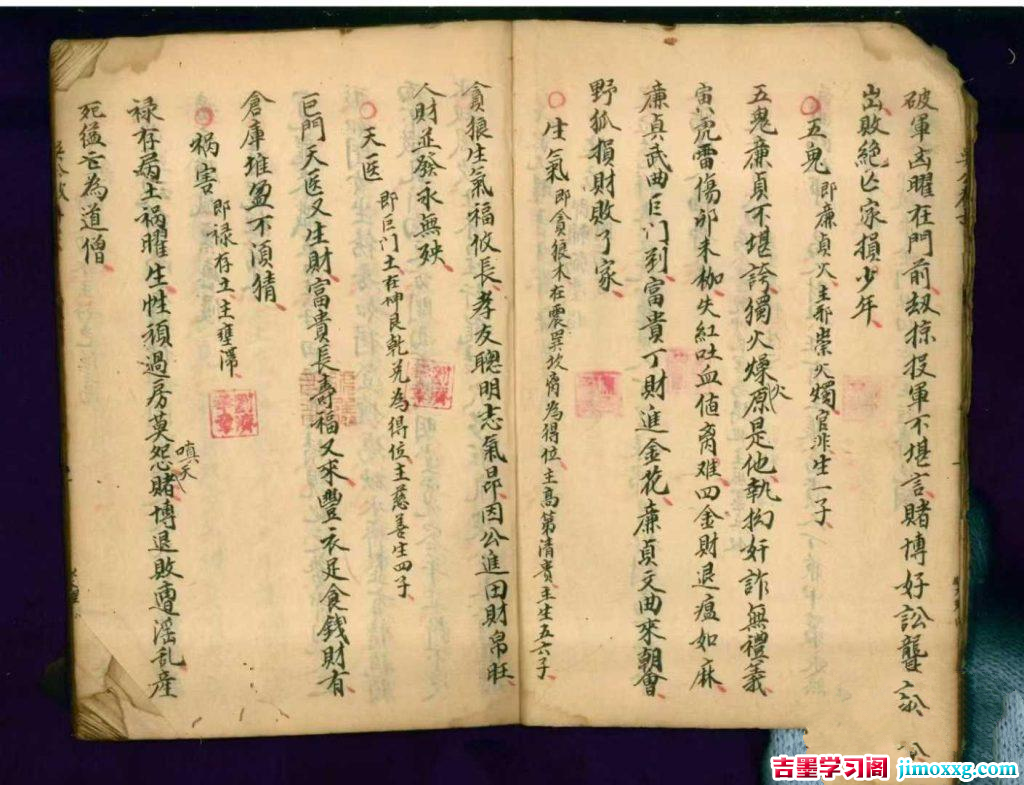 破軍凶曜在門前劫掠投軍不堪言賭博好訟聾
出敗絕亡家損少年
五鬼 即廉貞火主邪祟火燭官非生一子
五鬼廉貞不堪誇獨火燥火原是他執拗奸詐無禮義
寅虎雷傷卯未枷失紅吐血值离难四金財退瘟如麻
廉貞武曲巨门到富貴丁財進金花廉貞文曲來朝會
野狐損財敗了家
生氣 即貪狼木在震巽坎离為得位主高第清貴主生五六子
貪狼生氣福攸長孝友聰明志氣昂因公進田財帛旺
人財並發永無殃
天医 即巨门土在坤艮乾兑為得位主慈善生四子
巨門天医又生財富貴長壽福又來豐衣足食錢財有
倉庫堆盈不湏猜
祸害 即禄存土主壅滞
禄存為土祸曜生性頑過房莫怨嗔天賭博退敗遭淫乱産
死孤亡為道僧
吉墨学习阁 jimoxxg.com